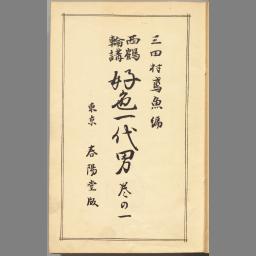 三田村鳶魚編
西鶴
輪講
好色一代男 巻の一
東京 春陽堂版